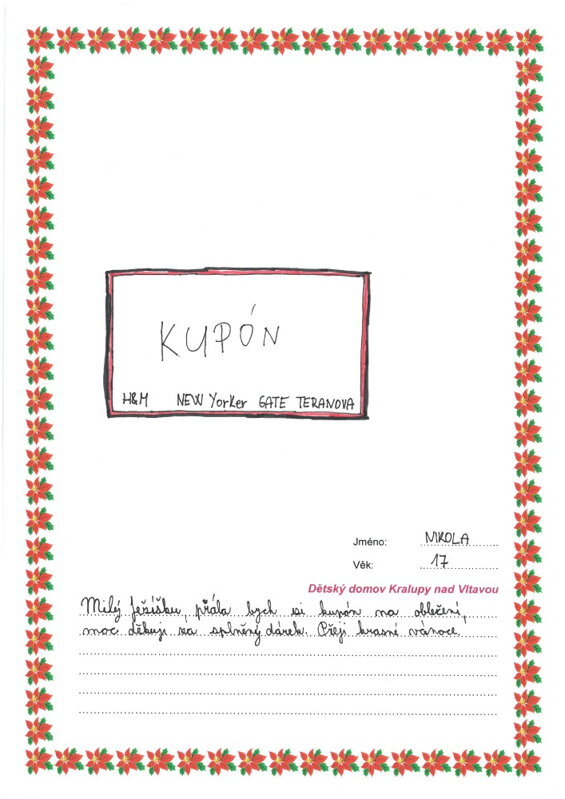 KUPÓN
H&M NEW Yorker GATE TERANOVA
Jméno: NIKOLA
Věk: 17
Dětský domov Kralupy nad Vltavou
Milý Ježíšku, přála bych si kupón na oblečení,
moc děkuji za splněný dárek. Přeji krasné vánoce